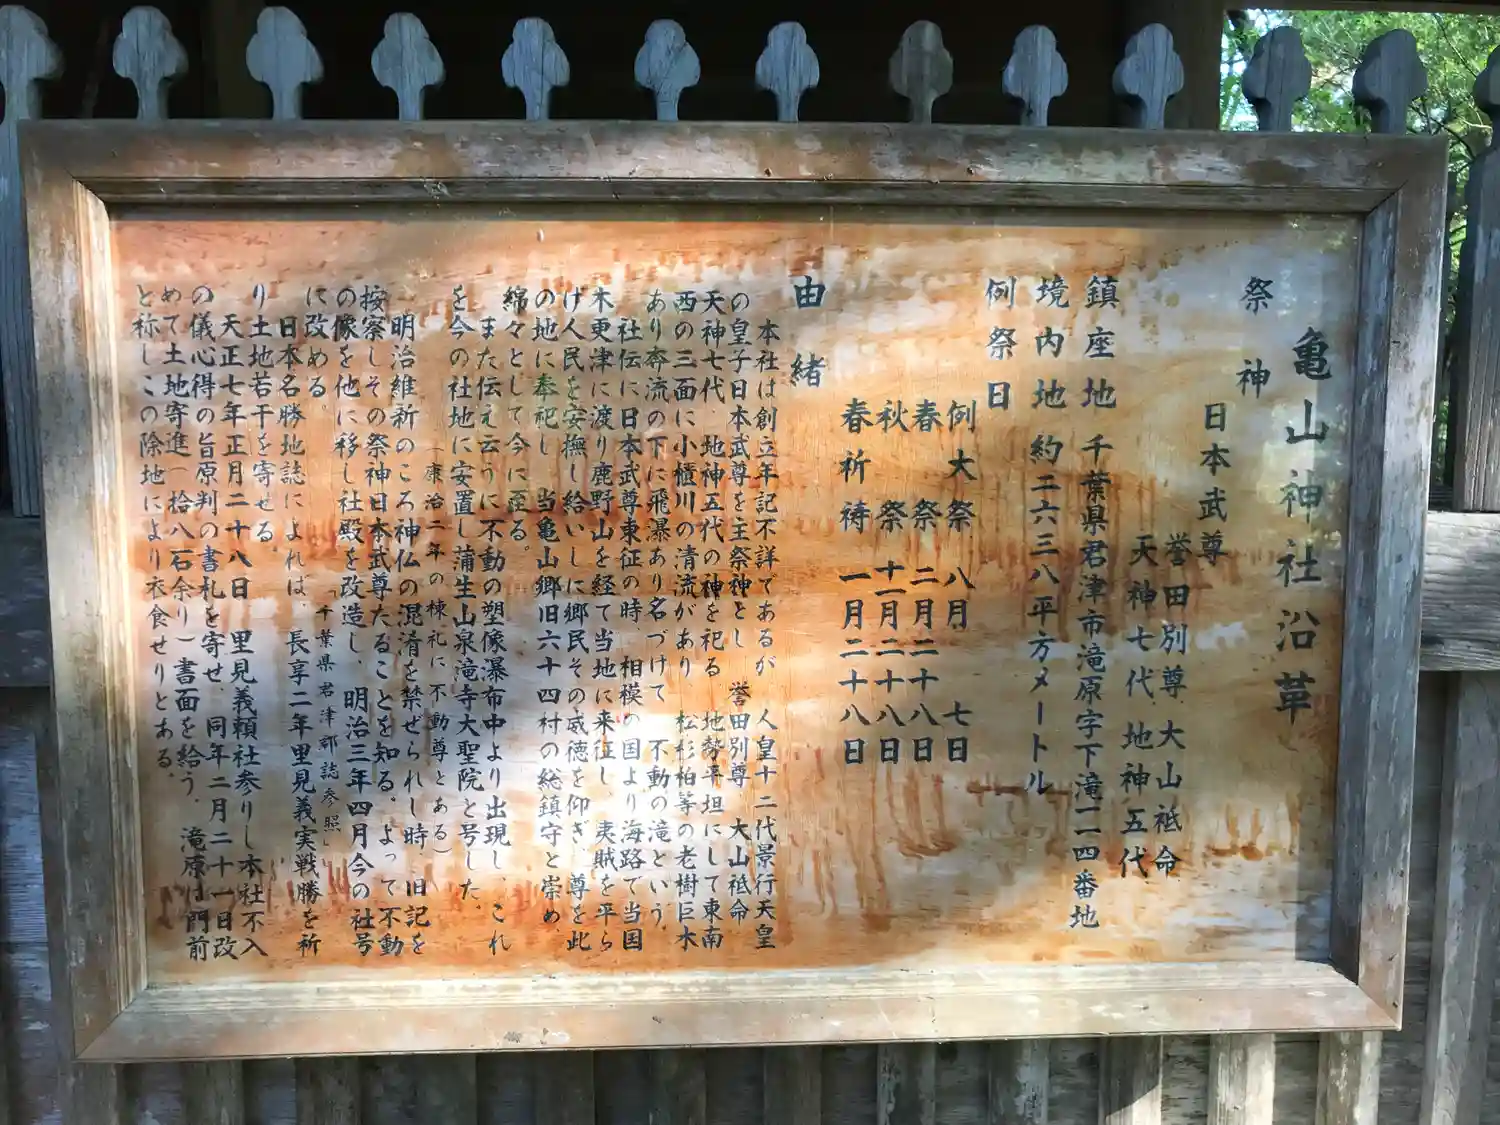 亀山神社沿革
祭神
日本武尊
誉田別尊 大山祇命
天神七代 地神五代
鎮座地 千葉県君津市滝原字下滝一二四番地
境内地 約二六三八平方メートル
例祭日
例大祭 八月 七日
春祭 二月二十八日
秋祭 十一月二十八日
春祈祷 一月二十八日
由緒
本社は創立年記不詳であるが 人皇十二代景行天皇
の皇子日本武尊を主祭神とし 誉田別尊 大山祇命
天神七代、地神五代の神を祀る 地勢平坦にして東南
西の三面に小櫃川の清流があり 松杉柏等の老樹巨木
あり奔流の下に飛瀑あり名づけて 不動の滝という。
社伝に日本武尊東征の時、相模の国より海路で当国
木更津に渡り鹿野山を経て当地に来征し、夷賊を平ら
げ人民を安撫し給いしに郷民その威徳を仰ぎ 尊を此
の地に奉祀し 当亀山郷旧六十四村の総鎮守と崇め、
綿々として今に至る。
また伝え云うに不動の塑像瀑布中より出現し、これ
を今の社地に安置し蒲生山泉滝寺大聖院と号した。
(康治二年の棟札に不動尊とある)
明治維新のころ神仏の混淆を禁ぜられし時、旧記を
按察しその祭神日本武尊たることを知る。よって不動
の像を他に移し社殿を改造し、明治三年四月今の社号
に改める。
「千葉県君津郡誌参照」
日本名勝地誌によれば、長享二年里見義実戦勝を祈
り土地若干を寄せる。
天正七年正月二十八日 里見義頼社参りし本社不入
の儀心得の旨原判の書札を寄せ、同年二月二十一日改
めて土地寄進(拾八石余り)書面を給う、滝原は門前
と称しこの除地により衣食せりとある。